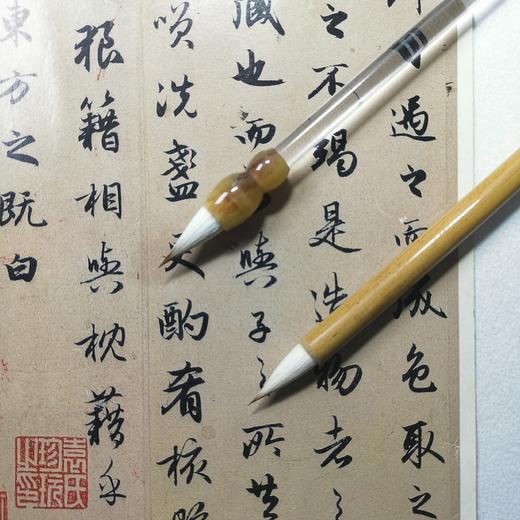 遇之而成色取之
之不竭是造物者之
藏也而與子之所共
咲洗盞更酌肴核既
狼籍相與枕藉乎
東方之既白
袁氏